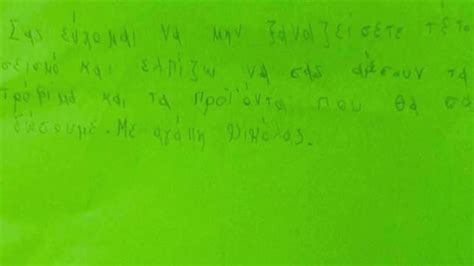 Σας εύχομαι να μην ξαναζείσετε τέτο
σεισμό και ελπίζω να σας αρέσουν τα
τροφιμά και τα προϊόντα που θα σα
δώσουμε. Με αγάπη Νικόλας.